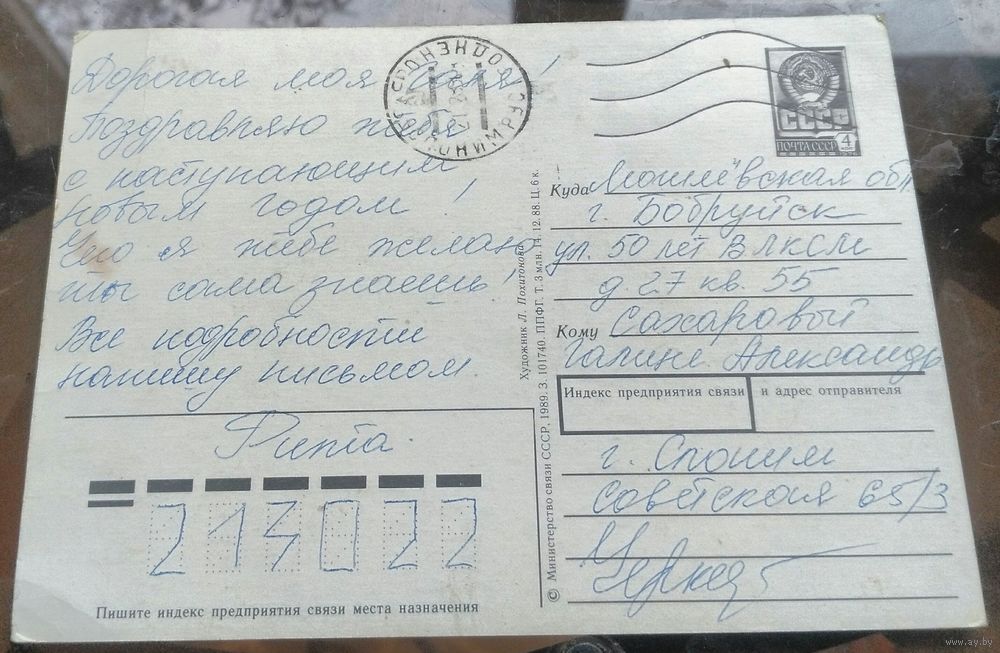 Дорогая моя Галя!
Поздравляю тебя
с наступающим
новым годом!
Что я тебе желаю
ты сама знаешь!
Все подробности
напишу письмом.
Рита.
213022
Пишите индекс предприятия связи места назначения
СЛОНИМ
СССР
ПОЧТА СССР 4
1976
Куда Могилёвская обл
г. Бобруйск
ул. 50 лет ВЛКСМ
д 27 кв. 55
Кому Сахаровой
Галине Александр
Индекс предприятия связи и адрес отправителя
г. Слоним
Советская 65/3
Художник Л. Похитонова
© Министерство связи СССР, 1989. З. 101740. ППФГ. Т. 3 млн. 14. 12. 88. Ц. 6 к.
www.ay.by